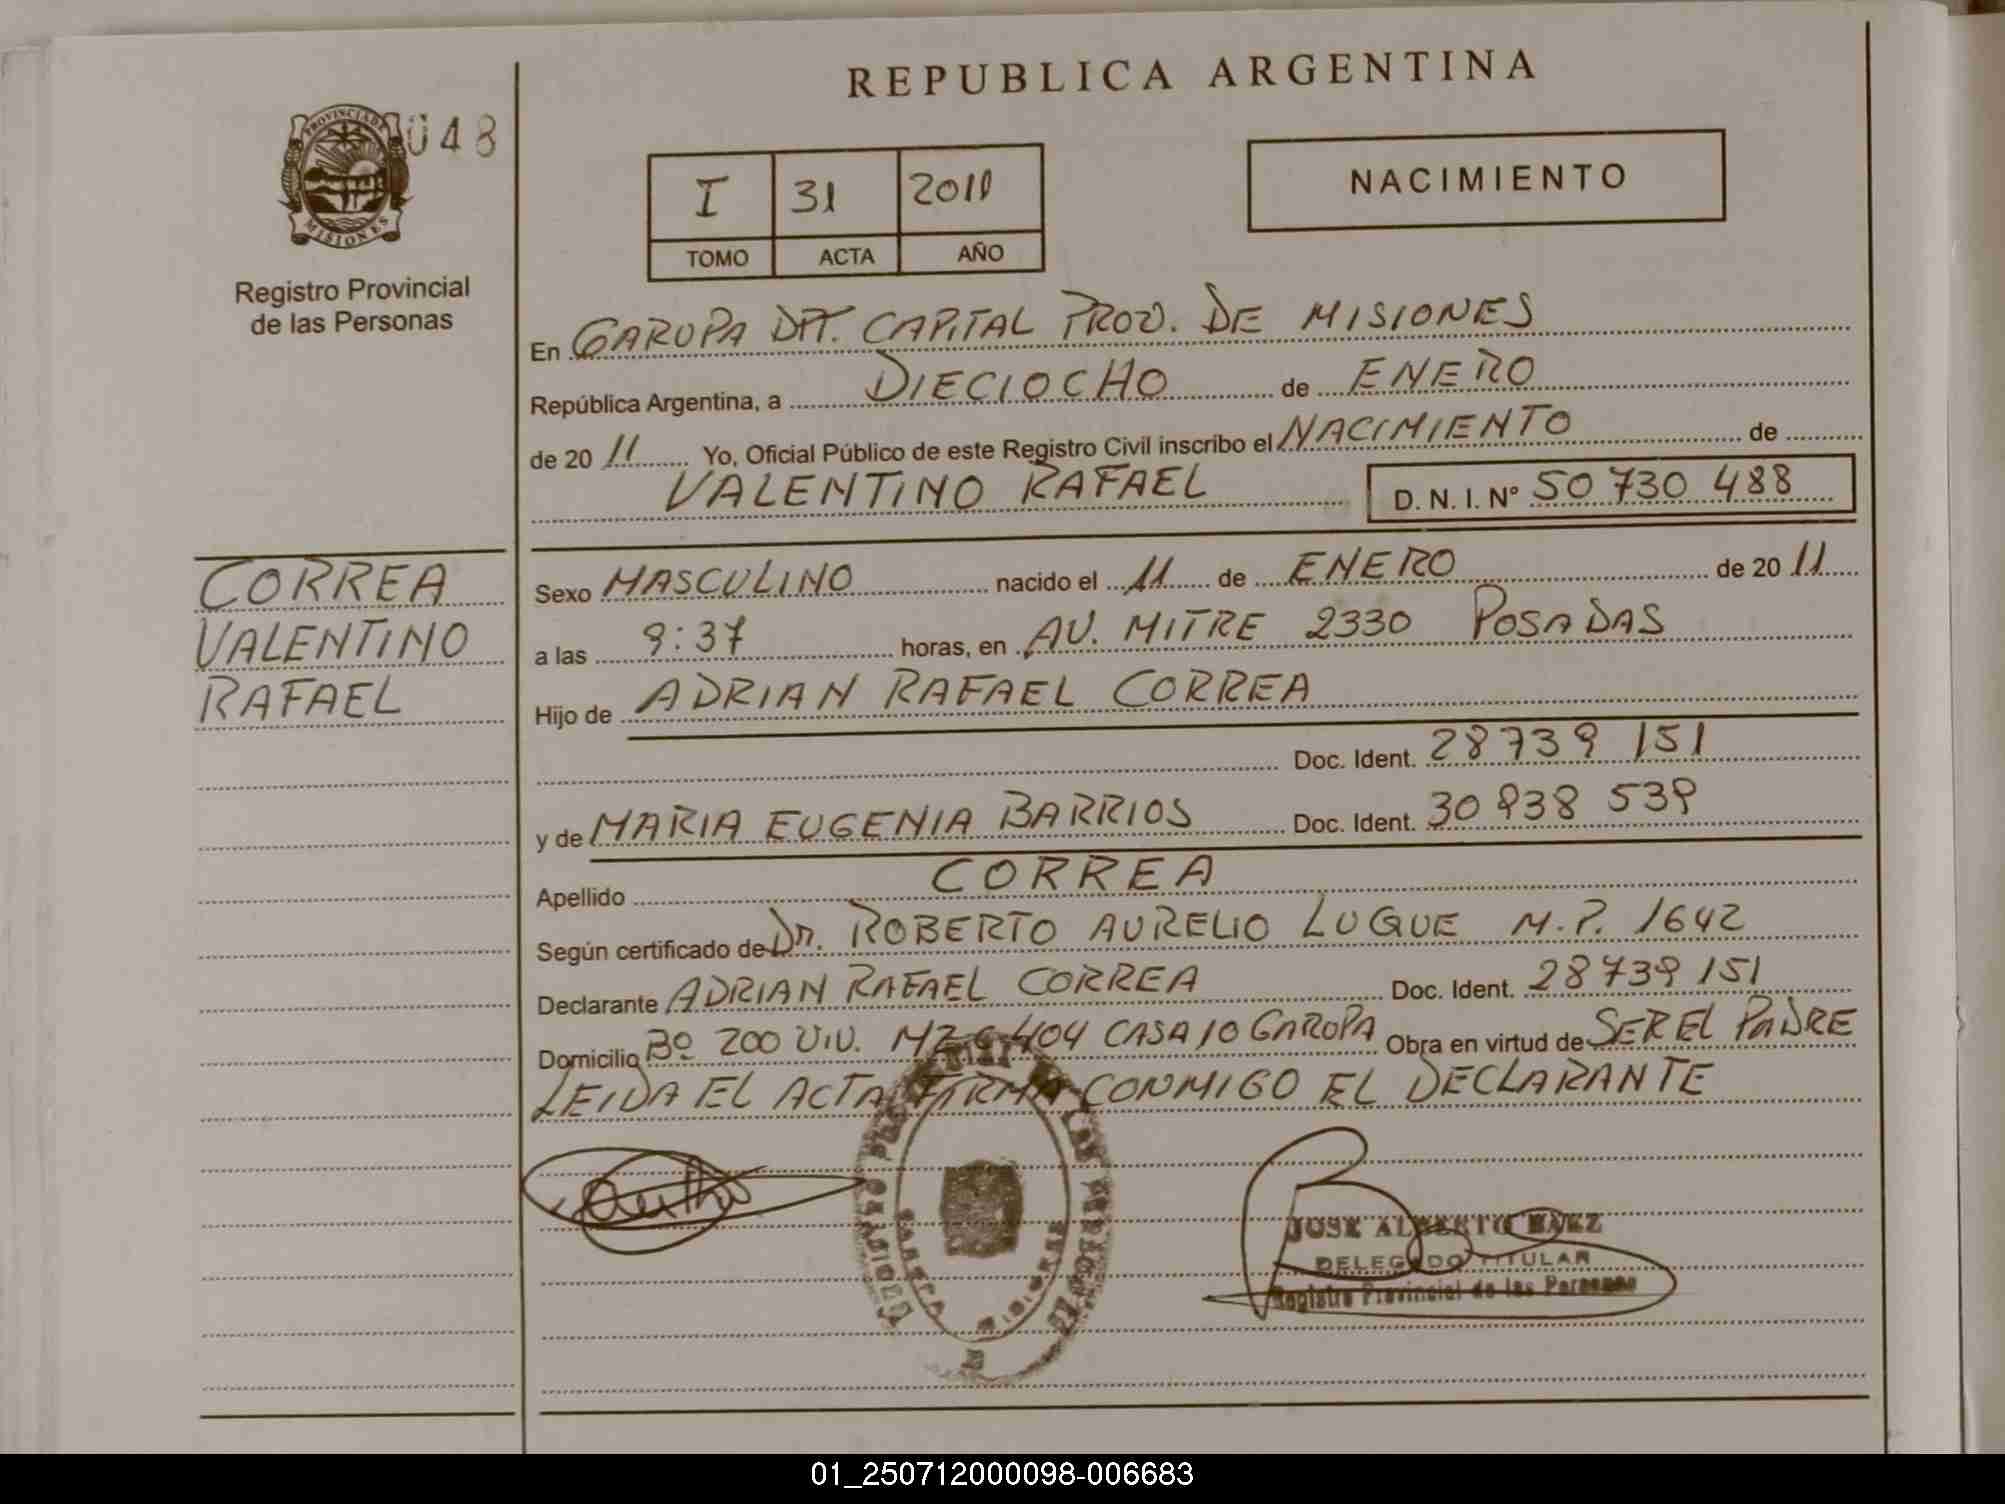 REPUBLICA ARGENTINA
PROVINCIA DE
MISIONES
048
Registro Provincial
de las Personas
I 31 2011
TOMO ACTA AÑO
NACIMIENTO
En GARUPA DPT. CAPITAL PROV. DE MISIONES
República Argentina, a DIECIOCHO de ENERO
de 20 11 Yo, Oficial Público de este Registro Civil inscribo el NACIMIENTO de
VALENTINO RAFAEL D. N. I. Nº 50 730 488
CORREA
VALENTINO
RAFAEL
Sexo MASCULINO nacido el 11 de ENERO de 20 11
a las 9:37 horas, en AV. MITRE 2330 POSADAS
Hijo de ADRIAN RAFAEL CORREA
Doc. Ident. 28739 151
y de MARIA EUGENIA BARRIOS Doc. Ident. 30 938 539
Apellido CORREA
Según certificado de Dr. ROBERTO AURELIO LUQUE M.P. 1642
Declarante ADRIAN RAFAEL CORREA Doc. Ident. 28739 151
Domicilio Bº 200 VIV. MZ 404 CASA 10 GARUPA Obra en virtud de SER EL PADRE
LEIDA EL ACTA FIRMA CONMIGO EL DECLARANTE
JOSE ALBERTO BAEZ
DELEGADO TITULAR
Registro Provincial de las Personas
01_250712000098-006683